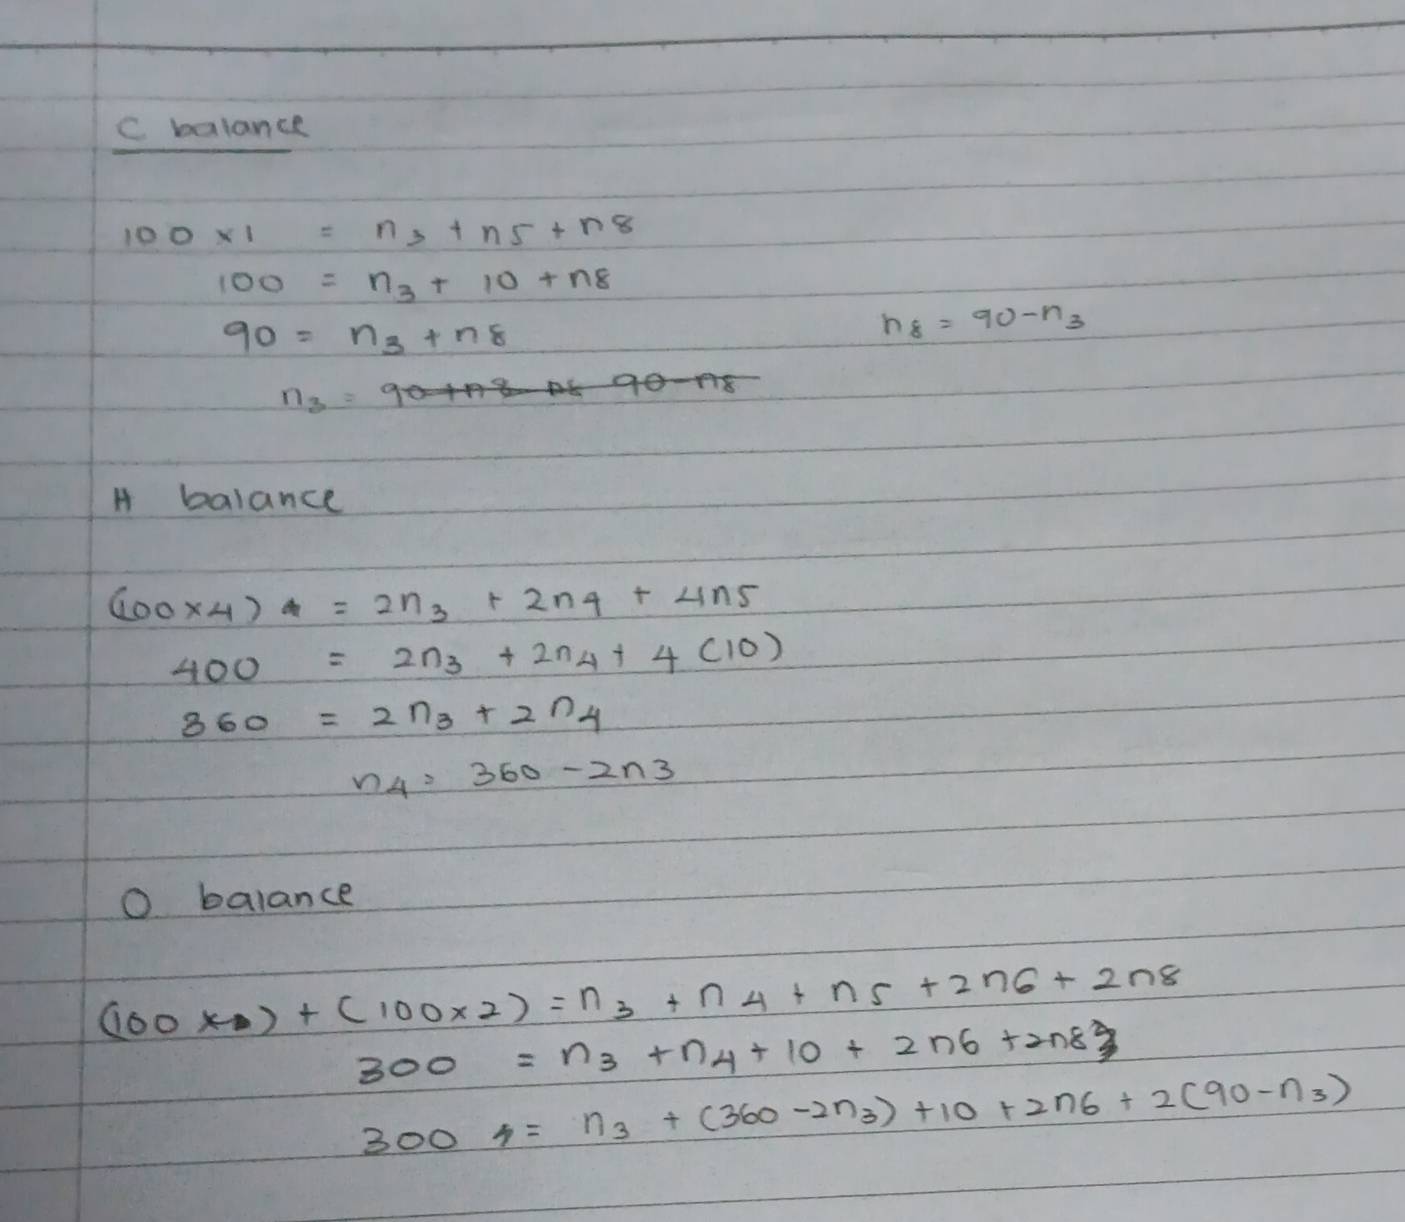 C balance
100 × 1 = n3 + n5 + n8
100 = n3 + 10 + n8
90 = n3 + n8
n8 = 90 - n3
n3 = 90+n8 n8 90-n8
H balance
(100×4) = 2n3 + 2n4 + 4n5
400 = 2n3 + 2n4 + 4 (10)
360 = 2n3 + 2n4
n4 = 360 - 2n3
O balance
(100 × ) + (100×2) = n3 + n4 + n5 + 2n6 + 2n8
300 = n3 + n4 + 10 + 2n6 + 2n8
300 = n3 + (360 - 2n3) + 10 + 2n6 + 2(90 - n3)